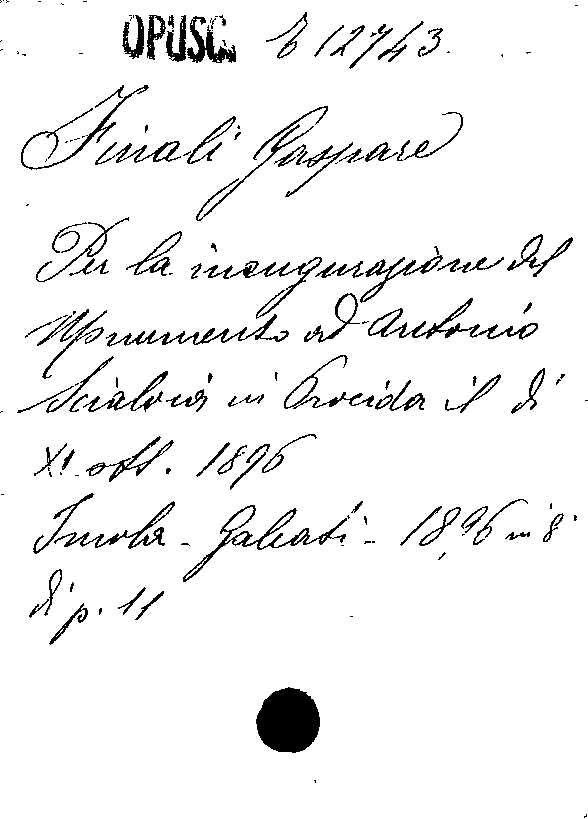 OPUSC. E 12743
Finali Gaspare
Per la inaugurazione del
Monumento ad Antonio
Scialoia in Procida il dì
XI ott. 1896
Imola - Galeati - 1896 in 8°
di p. 11